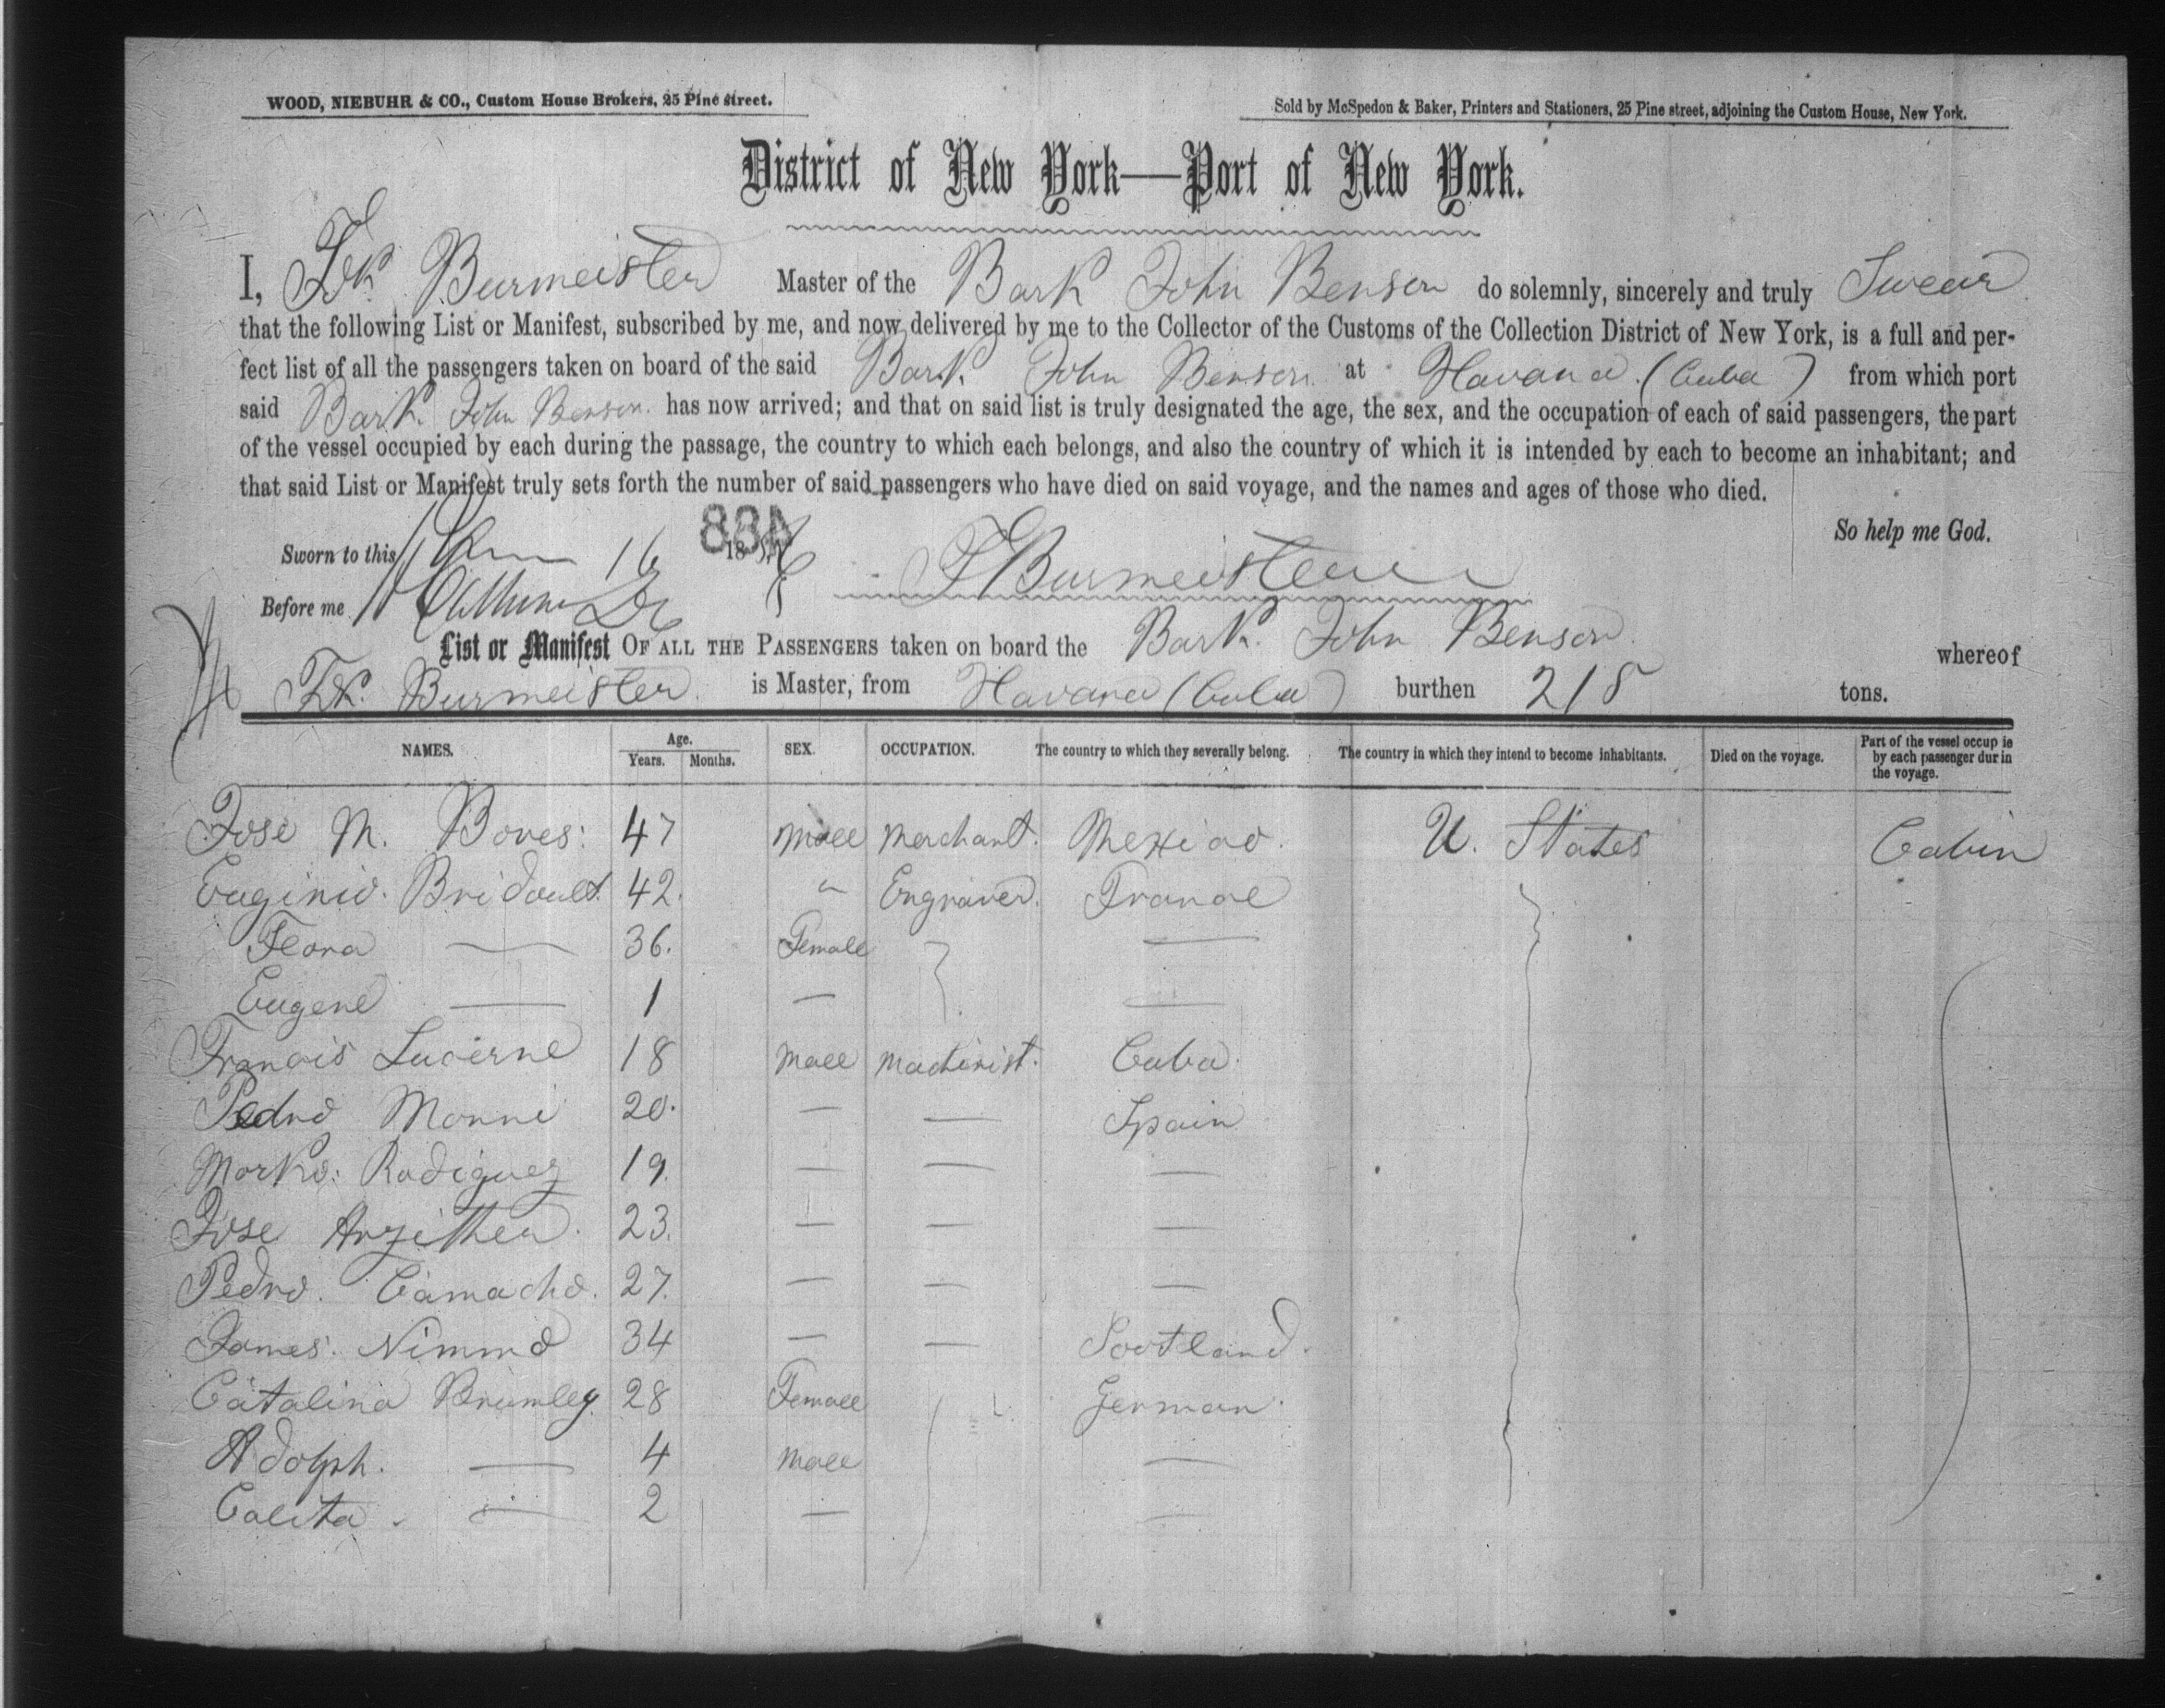 WOOD, NIEBUHR & CO., Custom House Brokers, 25 Pine street.
Sold by McSpedon & Baker, Printers and Stationers, 25 Pine street, adjoining the Custom House, New York.
District of New York—Port of New York.
I, Fdk Burmeister Master of the Bark John Benson do solemnly, sincerely and truly Swear
that the following List or Manifest, subscribed by me, and now delivered by me to the Collector of the Customs of the Collection District of New York, is a full and per-
fect list of all the passengers taken on board of the said Bark John Benson at Havana (Cuba) from which port
said Bark John Benson has now arrived; and that on said list is truly designated the age, the sex, and the occupation of each of said passengers, the part
of the vessel occupied by each during the passage, the country to which each belongs, and also the country of which it is intended by each to become an inhabitant; and
that said List or Manifest truly sets forth the number of said passengers who have died on said voyage, and the names and ages of those who died.
So help me God.
Sworn to this 16 18
884
F Burmeister
Before me
List or Manifest OF ALL THE PASSENGERS taken on board the Bark John Benson whereof
Fdk. Burmeister is Master, from Havana (Cuba) burthen 218 tons.
NAMES. Age. Years. Months. SEX. OCCUPATION. The country to which they severally belong. The country in which they intend to become inhabitants. Died on the voyage. Part of the vessel occup ie by each passenger dur in the voyage.
Jose M. Boves: 47 Male Merchant. Mexico. U. States Cabin
Euginio. Bridoult. 42. " Engraver. France
Flora — 36. Female —
Eugene — 1 — —
Francis Lucerne 18 Male Machinist. Cuba.
Pedro Monni 20. — — Spain
Marko: Rodiguez 19. — — —
Jose 23. — — —
Pedro. Camacho. 27. — — —
James. Nimmo 34 — — Scotland.
Catalina Brumley 28 Female German.
Adolph. — 4 Male —
Calita. — 2 — —